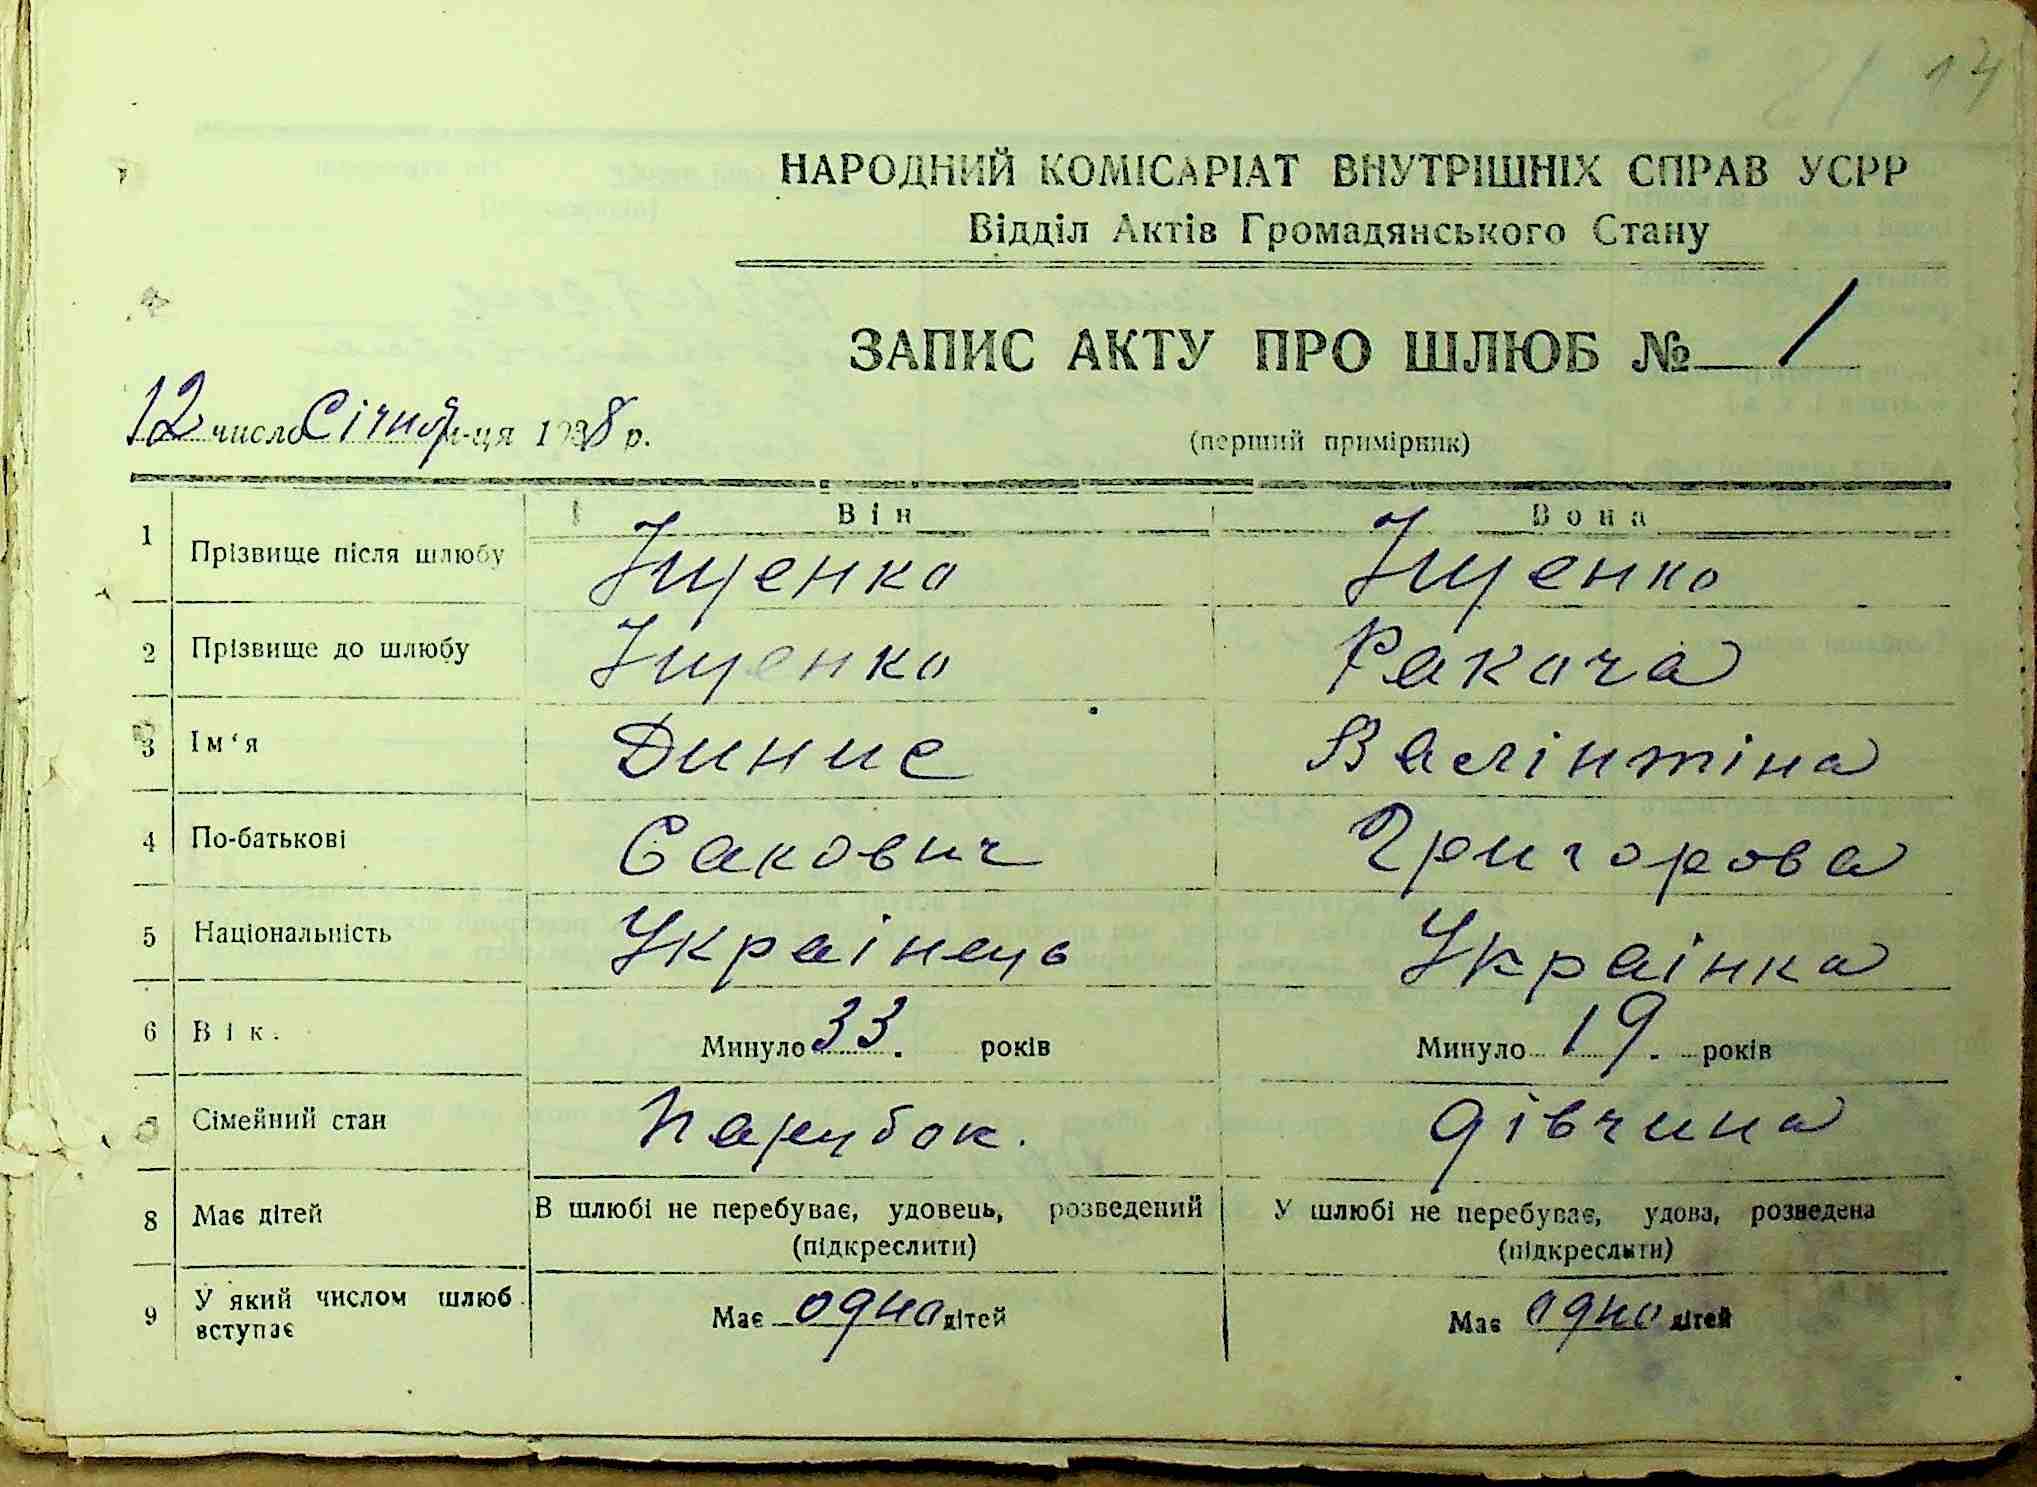 14
НАРОДНИЙ КОМІСАРІАТ ВНУТРІШНІХ СПРАВ УСРР
Відділ Актів Громадянського Стану
ЗАПИС АКТУ ПРО ШЛЮБ № 1
12 число Січня м-ця 1938 р.
(перший примірник)
Він Вона
1 Прізвище після шлюбу Іщенко Іщенко
2 Прізвище до шлюбу Іщенко Ракоча
3 Ім'я Динис Валінтіна
4 По-батькові Сакович Григорова
5 Національність Украінець Украінка
6 Вік. Минуло 33. років Минуло 19. років
7 Сімейний стан Парубок. дівчина
8 Має дітей В шлюбі не перебуває, удовець, розведений У шлюбі не перебуває, удова, розведена
(підкреслити) (підкреслити)
9 У який числом шлюб вступає Має одно дітей Має одно дітей